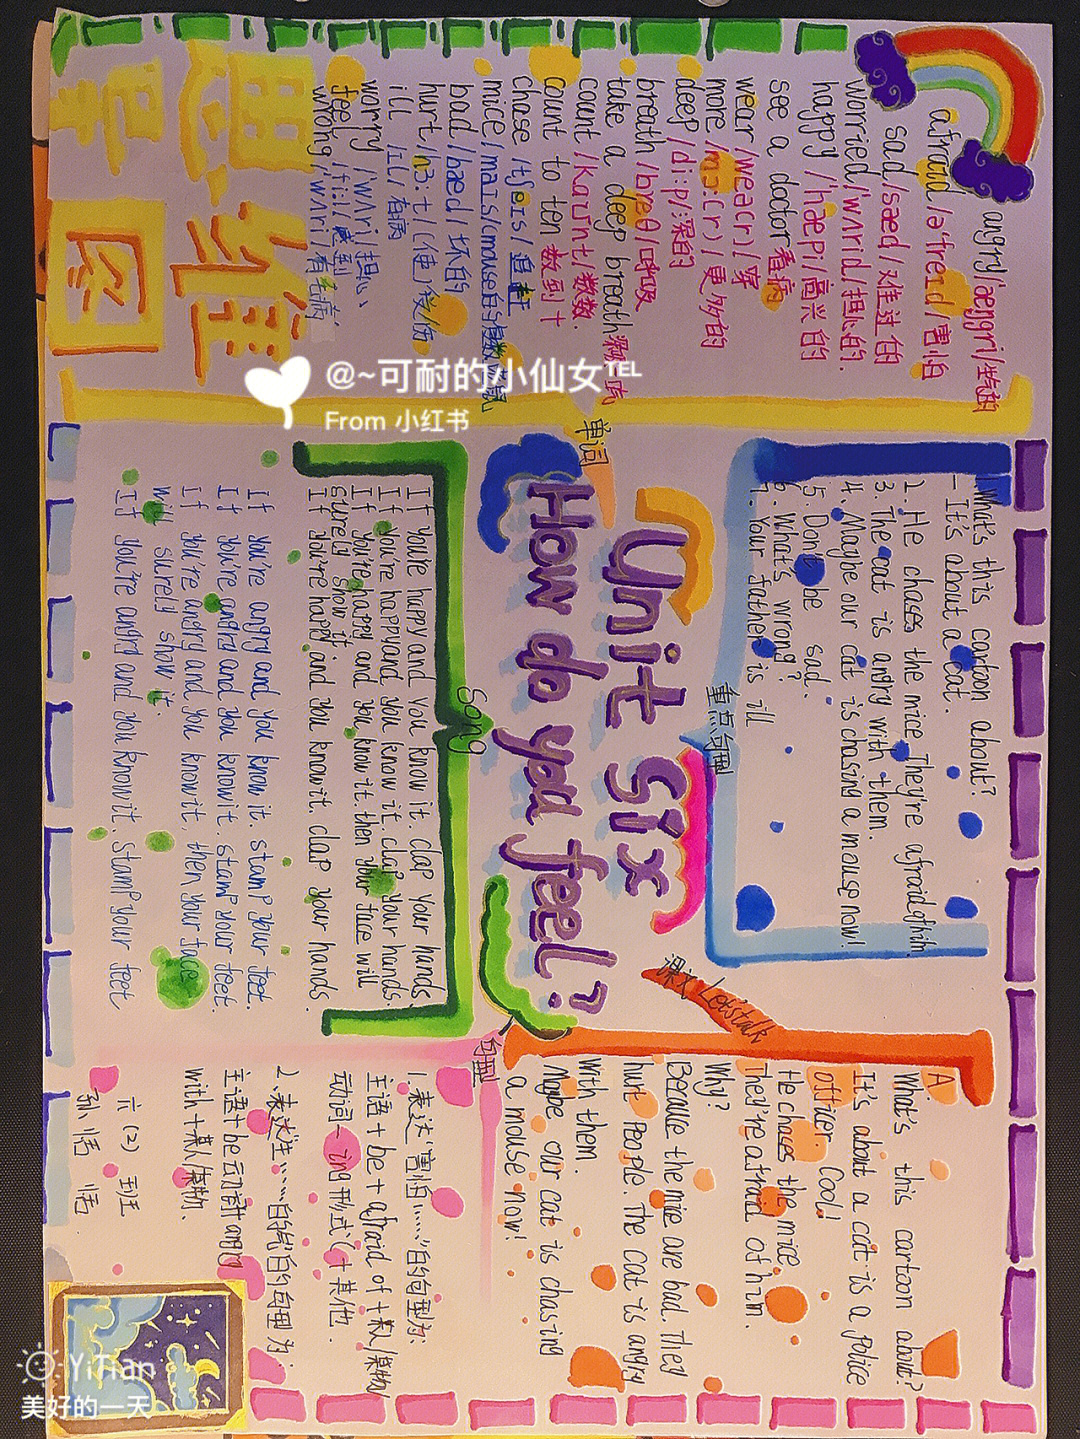 思维
导图
Unit Six
How do you feel?
单词
angry/'æŋgri/生气的
afraid/ə'freid/害怕
sad/sæd/难过的
worried/wʌrid/担心的.
happy/'hæpi/高兴的
see a doctor看病
wear/wea(r)/穿
more/mɔ:(r)/更多的
deep/di:p/深的
breath/breθ/呼吸
take a deep breath
count/kaunt/数数.
count to ten 数到十
chase/tʃeis/追赶
mice/mais/(mouse的复数)
bad/bæd/坏的
hurt/hɜ:t/(使)受伤
ill/IL/有病
worry/wʌri/担心
feel/fi:l/感到
wrong/wʌri/有毛病.
重点句型
1.What's this cartoon about?
-It's about a cat.
2. He chases the mice. They're afraid of him.
3. The cat is angry with them.
4. Maybe our cat is chasing a mouse now!
5. Don't be sad.
6. What's wrong?
7. Your father is ill
Song
If you're happy and you know it. clap your hands
If you're happy and you know it. clap your hands.
If you're happy and you know it. then your face will
surely show it.
If you're happy and you know it. clap your hands.
If you're angry and you know it. stamp your feet.
If you're angry and you know it. stamp your feet.
If you're angry and you know it, then your face
will surely show it.
If you're angry and you know it. Stamp your feet
课文 Let's talk
A
What's this cartoon about?
It's about a cat is a police
officer. Cool!
He chases the mice.
They're afraid of him.
Why?
Because the mice are bad. They
hurt people. The cat is angry
with them.
Maybe our cat is chasing
a mouse now!
句型
1.表达"害怕……"的句型为:
主语+be+afraid of+某人/某物
动词-ing形式(+其他.
2.表达"生……的气"的句型为:
主语+be动词+angry
with+某人/某物.
六(2)班
孙恬恬
@~可耐的小仙女TEL
From 小红书
YiTian
美好的一天